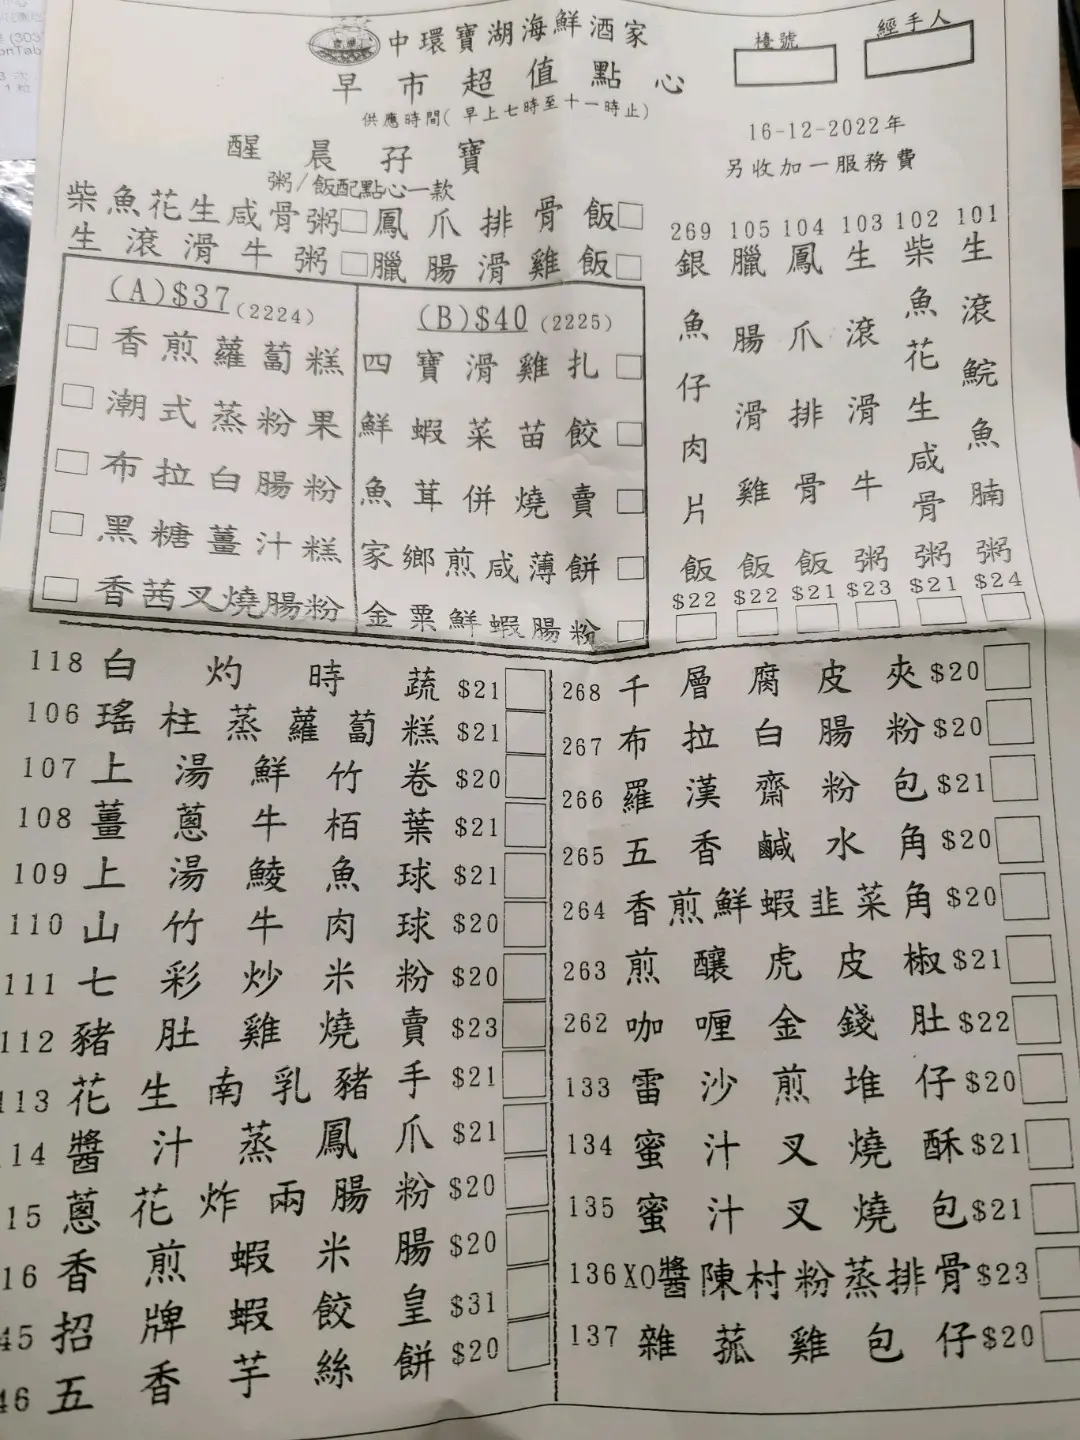 中環寶湖海鮮酒家
早市超值點心
供應時間(早上七時至十一時止)
檯號
經手人
16-12-2022年
另收加一服務費
醒晨孖寶
粥/飯配點心一款
柴魚花生咸骨粥 鳳爪排骨飯
生滾滑牛粥 臘腸滑雞飯
(A)$37(2224)
香煎蘿蔔糕
潮式蒸粉果
布拉白腸粉
黑糖薑汁糕
香茜叉燒腸粉
(B)$40(2225)
四寶滑雞扎
鮮蝦菜苗餃
魚茸併燒賣
家鄉煎咸薄餅
金粟鮮蝦腸粉
101 生滾鯇魚腩粥 $24
102 柴魚花生咸骨粥 $21
103 生滾滑牛粥 $23
104 鳳爪排骨飯 $21
105 臘腸滑雞飯 $22
269 銀魚仔肉片飯 $22
118 白灼時蔬 $21
106 瑤柱蒸蘿蔔糕 $21
107 上湯鮮竹卷 $20
108 薑蔥牛栢葉 $21
109 上湯鯪魚球 $21
110 山竹牛肉球 $20
111 七彩炒米粉 $20
112 豬肚雞燒賣 $23
113 花生南乳豬手 $21
14 醬汁蒸鳳爪 $21
15 蔥花炸兩腸粉 $20
16 香煎蝦米腸 $20
45 招牌蝦餃皇 $31
46 五香芋絲餅 $20
268 千層腐皮夾 $20
267 布拉白腸粉 $20
266 羅漢齋粉包 $21
265 五香鹹水角 $20
264 香煎鮮蝦韭菜角 $20
263 煎釀虎皮椒 $21
262 咖喱金錢肚 $22
133 雷沙煎堆仔 $20
134 蜜汁叉燒酥 $21
135 蜜汁叉燒包 $21
136 XO醬陳村粉蒸排骨 $23
137 雜菰雞包仔 $20